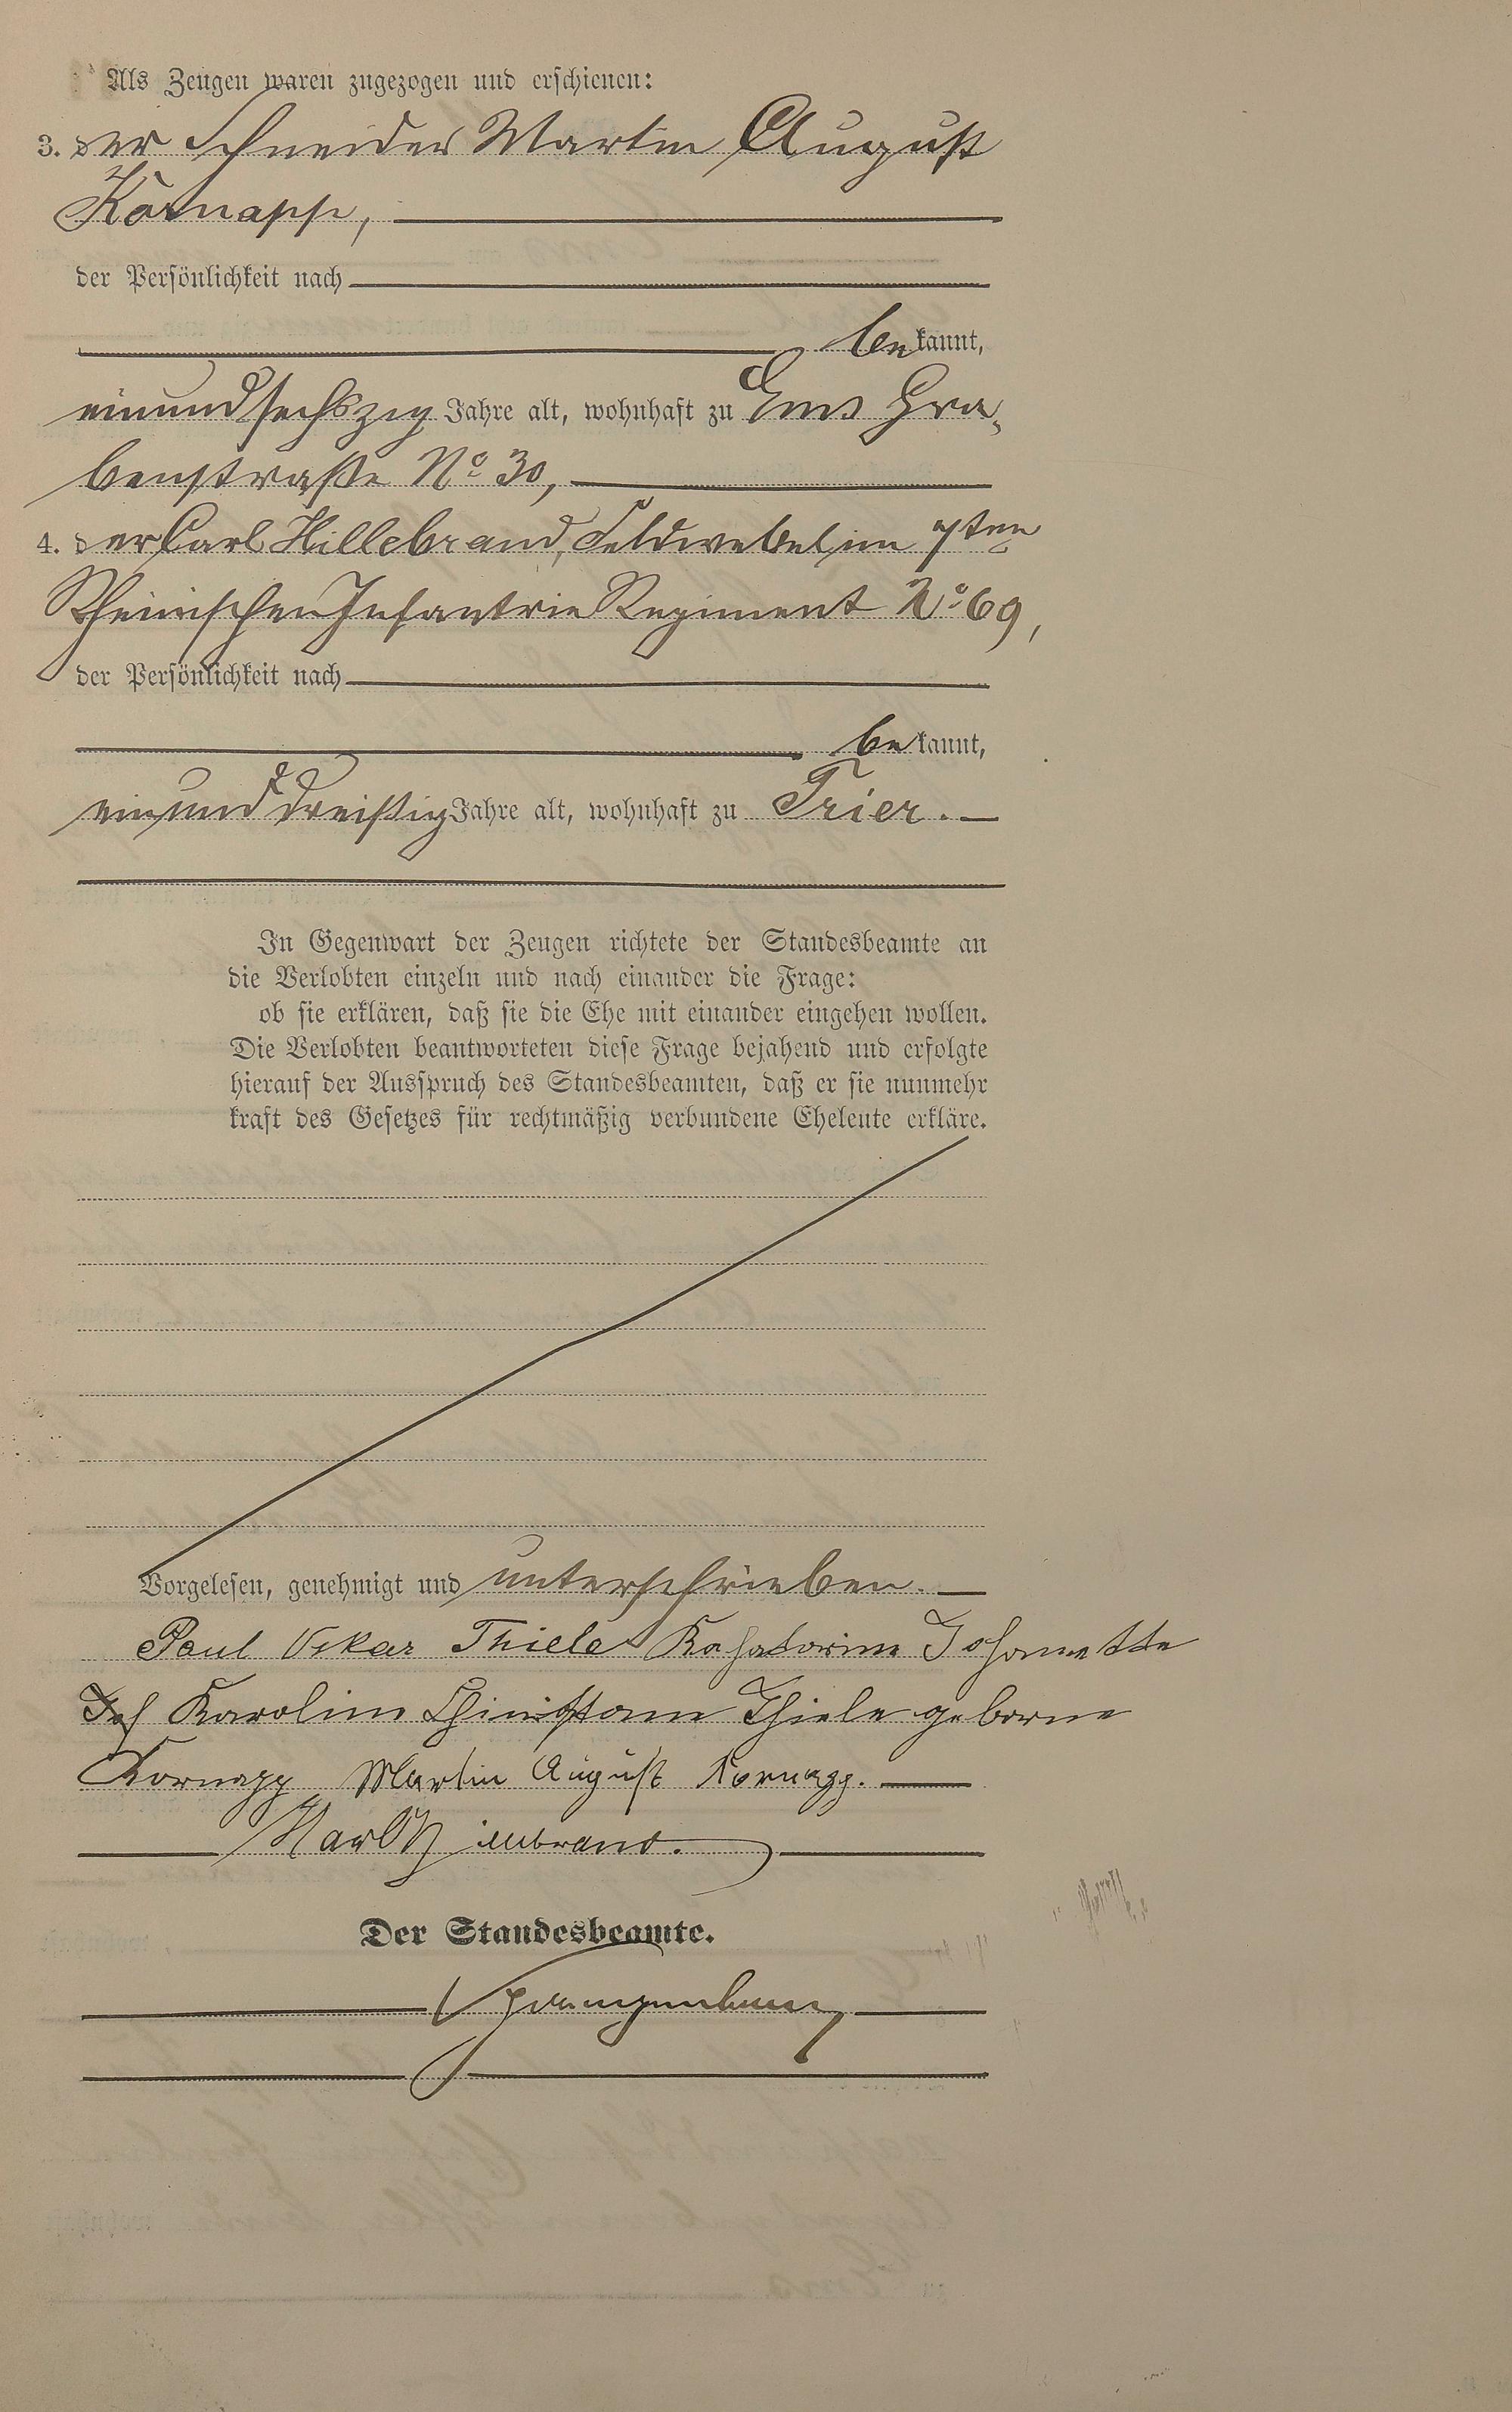 Als Zeugen waren zugezogen und erschienen:
3. der Schneider Martin August
Kornapp,
der Persönlichkeit nach
bekannt,
einundsechszig Jahre alt, wohnhaft zu Ems Gra-
benstraße No 30,
4. der Carl Hillebrand, Feldwebel im 7ten
Rheinischen Infantrie Regiment No 69,
der Persönlichkeit nach
bekannt,
einunddreißig Jahre alt, wohnhaft zu Trier.
In Gegenwart der Zeugen richtete der Standesbeamte an
die Verlobten einzeln und nach einander die Frage:
ob sie erklären, daß sie die Ehe mit einander eingehen wollen.
Die Verlobten beantworteten diese Frage bejahend und erfolgte
hierauf der Ausspruch des Standesbeamten, daß er sie nunmehr
kraft des Gesetzes für rechtmäßig verbundene Eheleute erkläre.
Vorgelesen, genehmigt und unterschrieben.
Paul Oskar Thiele Kahatorine Johannette
Karoline Thiele geborne
Kornapp Martin August Kornapp.
Karl Hillebrand.
Der Standesbeamte.